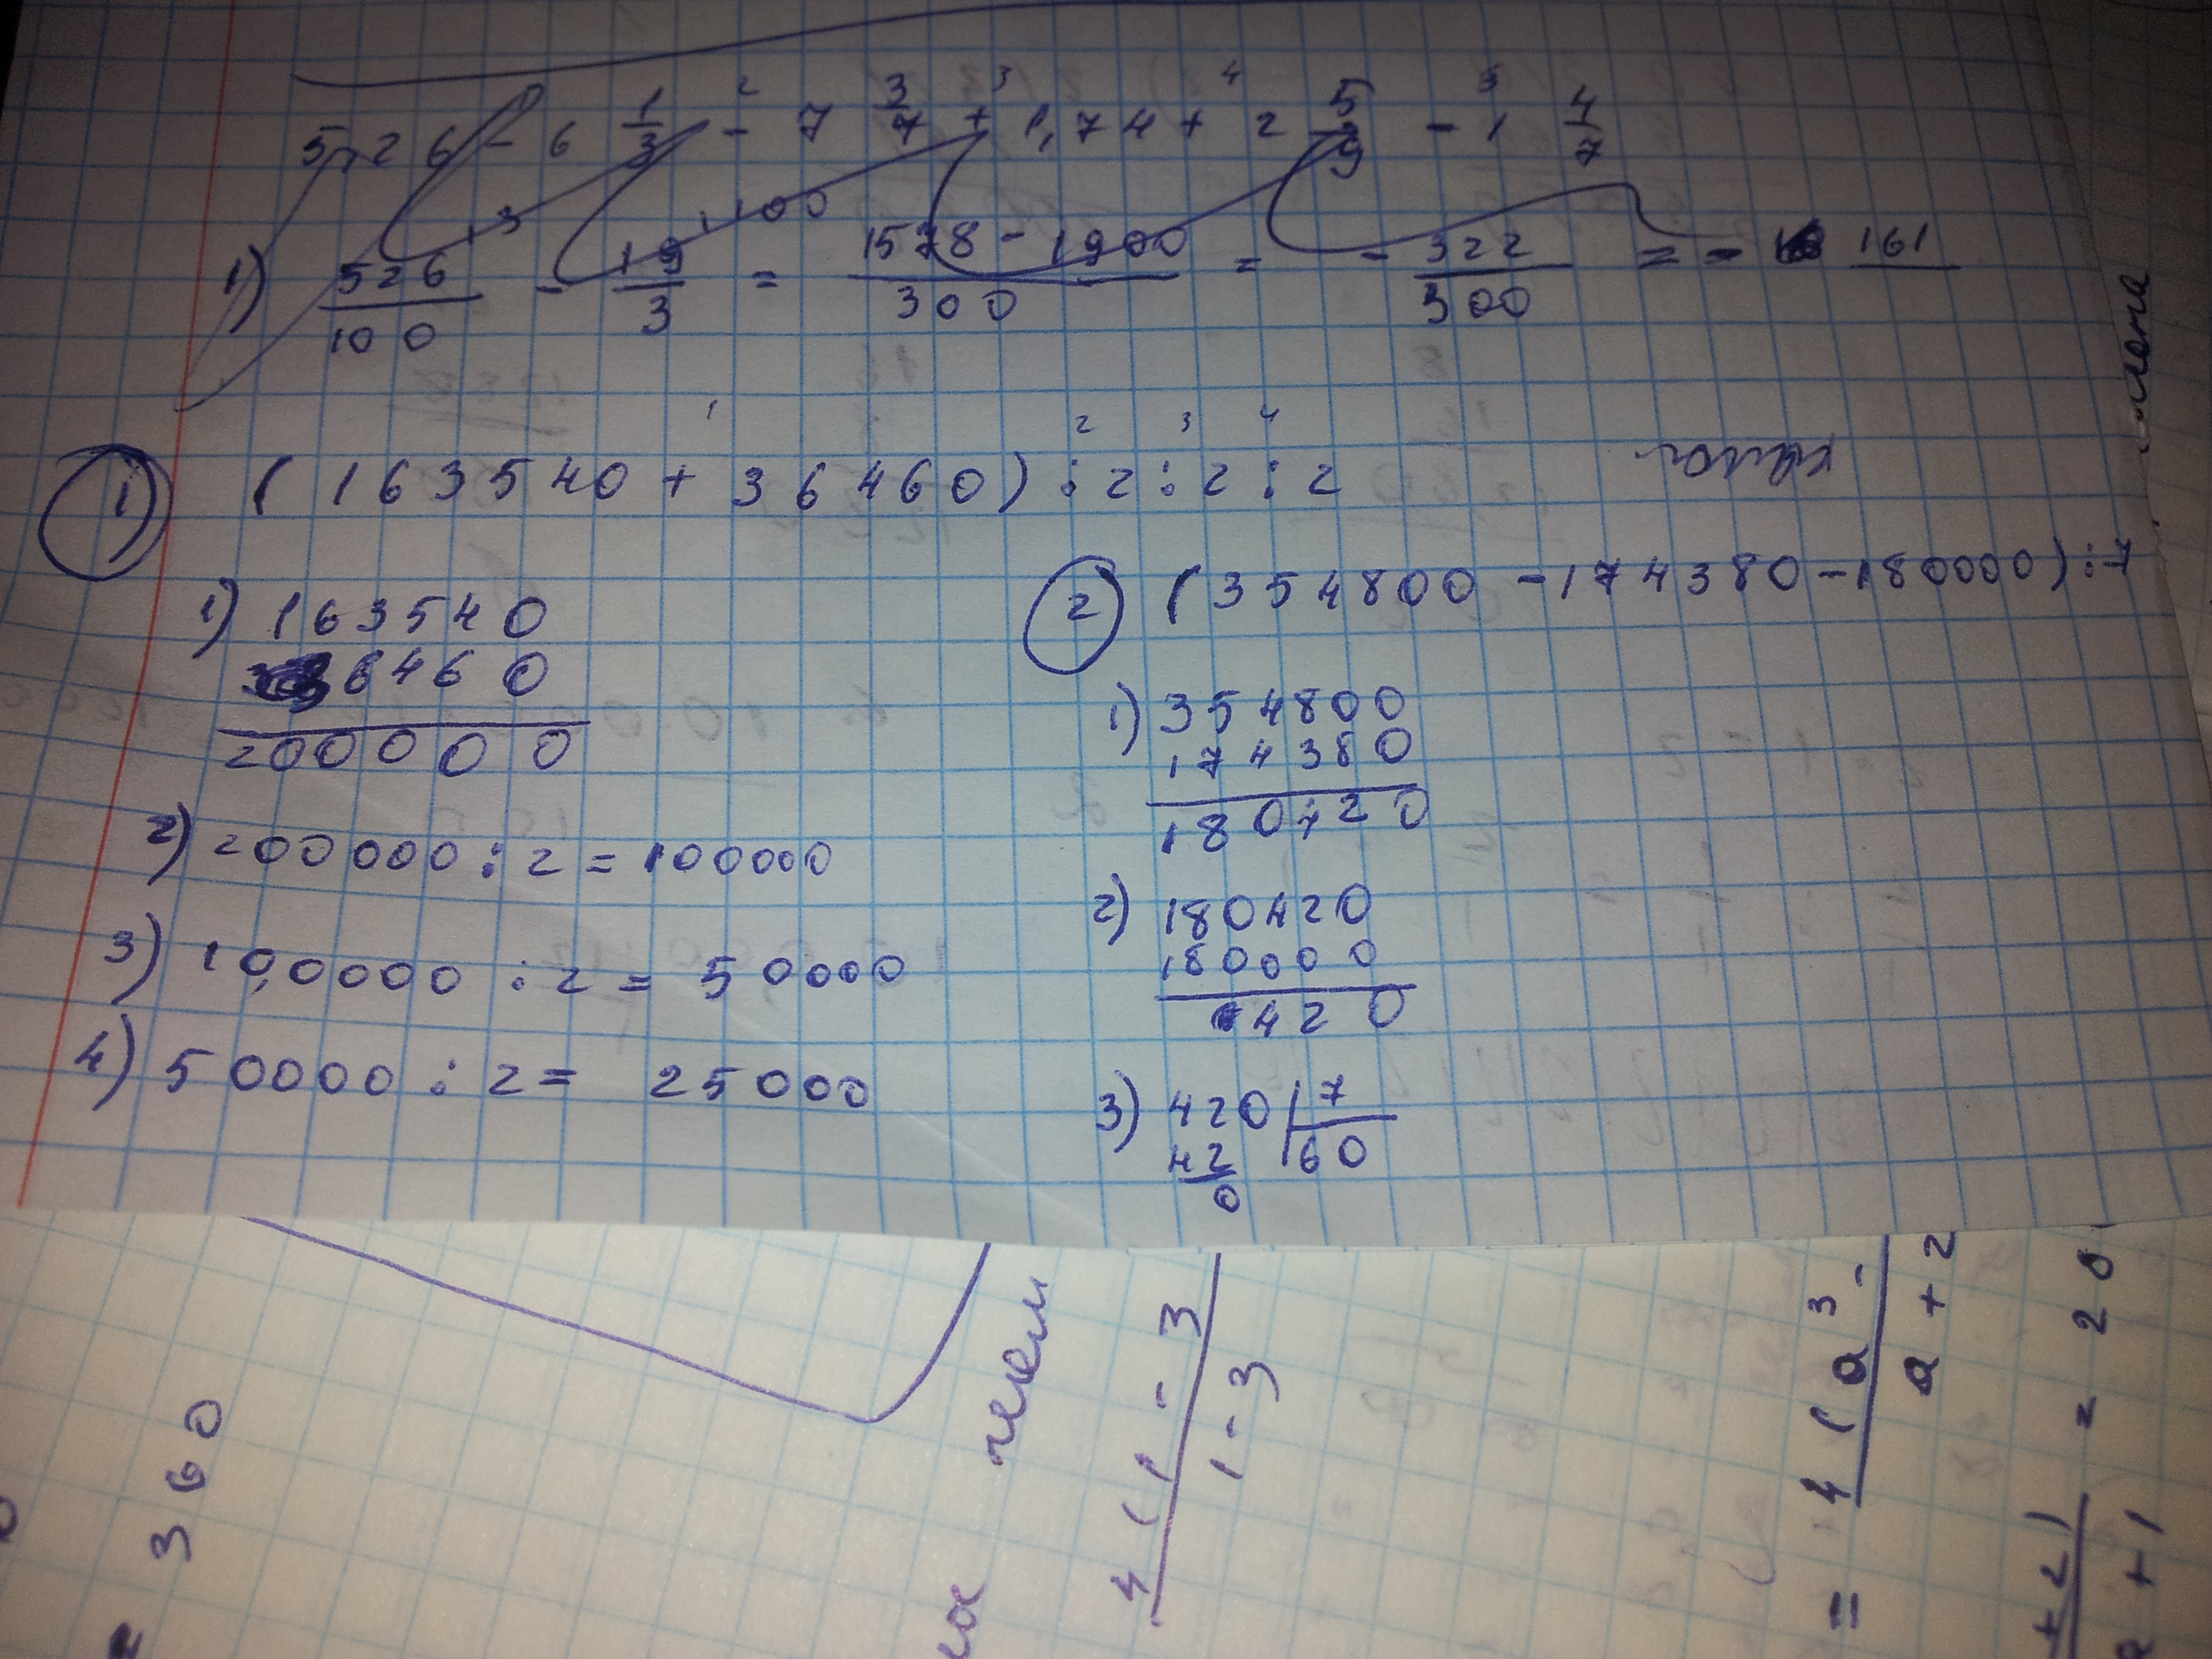 5,26 - 6 1/3 - 7 3/7 + 1,74 + 2 5/9 - 1 4/7
2 3 4 5
1) 526/100 - 19/3 = 1578 - 1900/300 = - 322/300 = - 161
13 1100
1 2 3 4
1) (163540 + 36460) : 2 : 2 : 2
1) 163540
36460
200000
2) 200000 : 2 = 100000
3) 100000 : 2 = 50000
4) 50000 : 2 = 25000
2) (354800 - 174380 - 180000) : 7
1) 354800
174380
180420
2) 180420
180000
420
3) 420 | 7
42 60
0
= 360
член
4(1 - 3
1 - 3
= 4(a³ -
a + 2
+2) = 20
+ 1